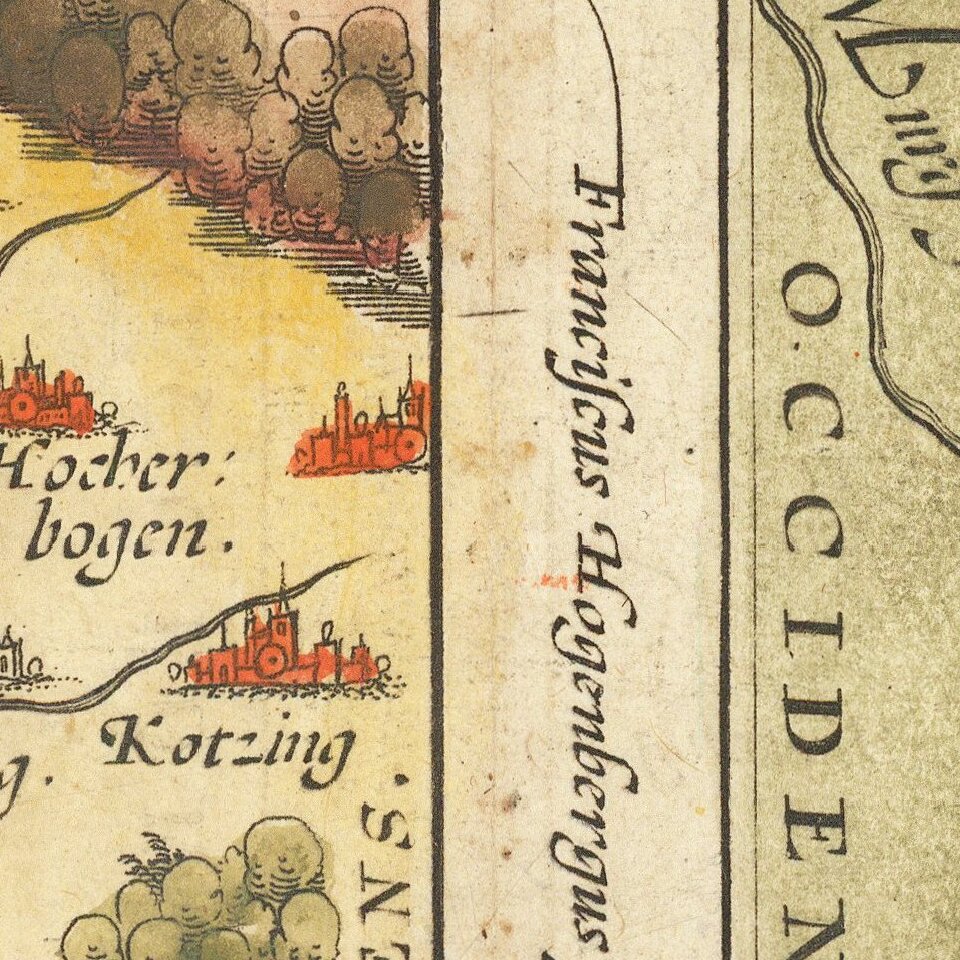 Hocher:
bogen.
Kotzing
g.
ENS.
Franciscus Hogenbergus
OCCIDEN
burg